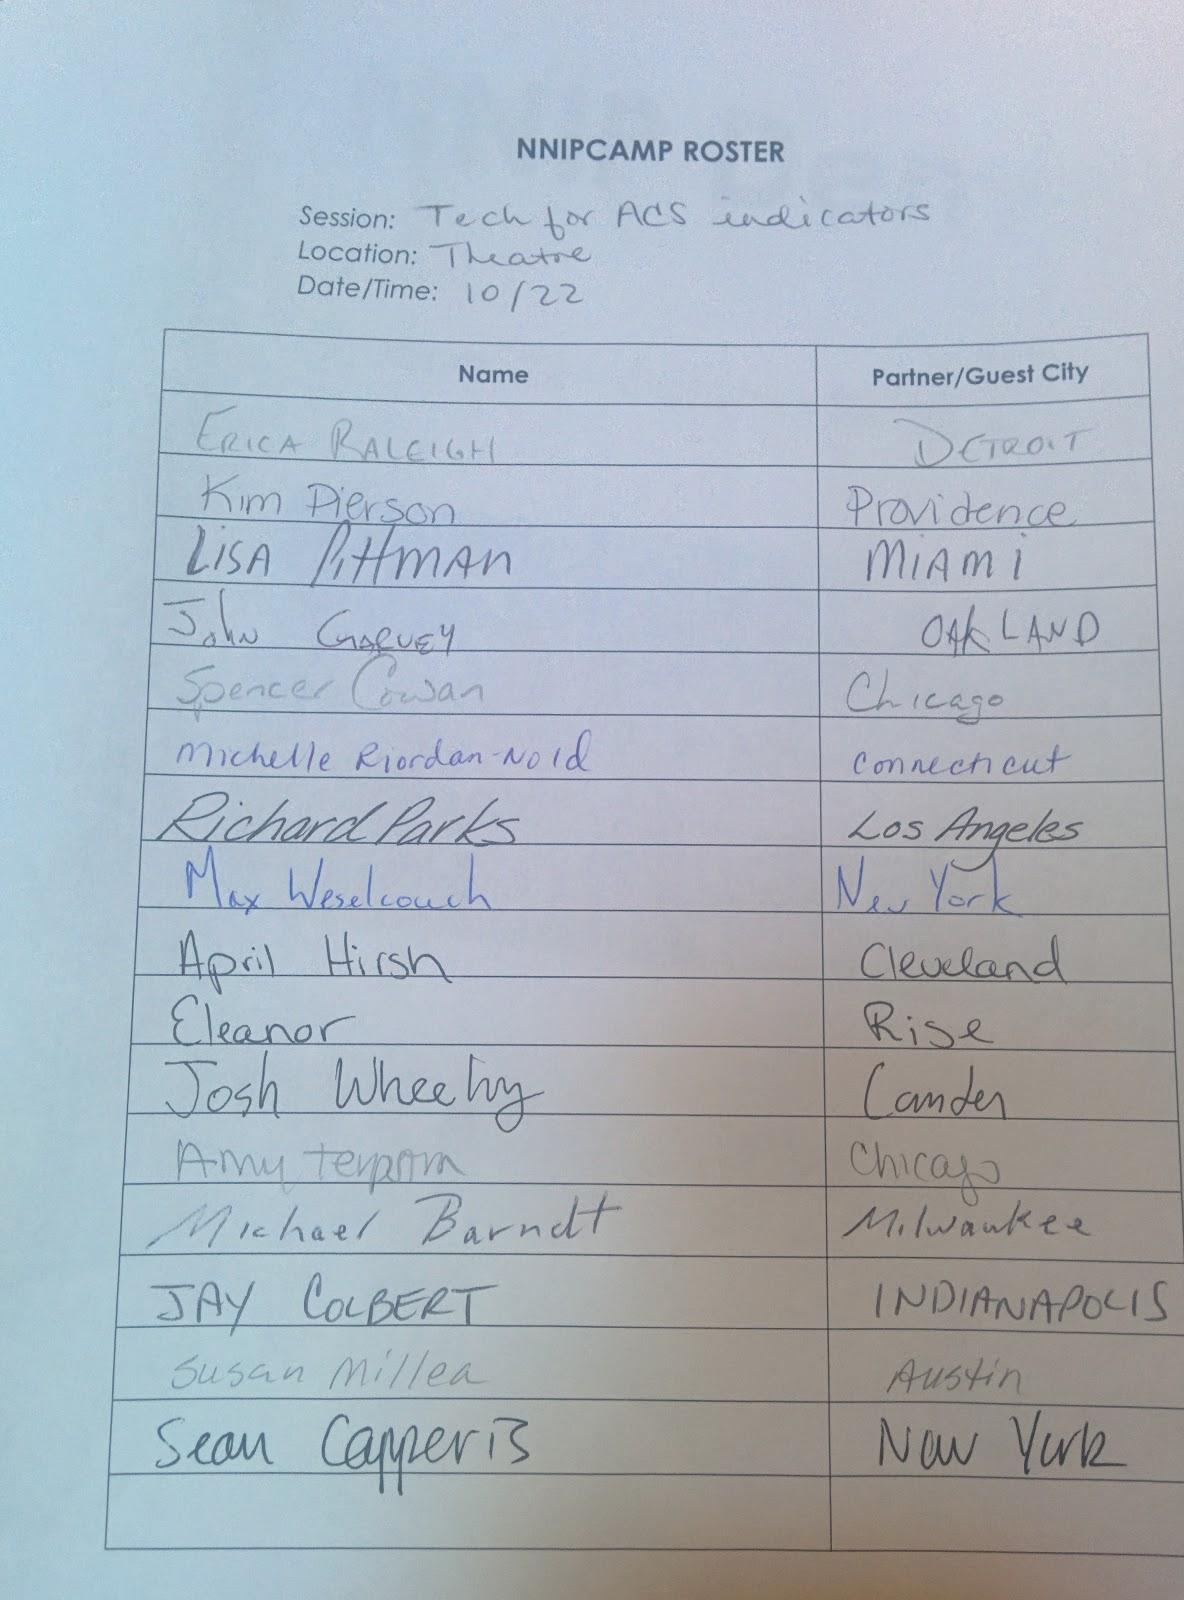 NNIPCAMP ROSTER
Session: Tech for ACS indicators
Location: Theatre
Date/Time: 10/22
Name Partner/Guest City
ERICA RALEIGH DETROIT
Kim Pierson Providence
LISA PITTMAN MIAMI
John GARVEY OAKLAND
Spencer Cowan Chicago
Michelle Riordan-Nold Connecticut
Richard Parks Los Angeles
Max Weselcouch New York
April Hirsh Cleveland
Eleanor Rise
Josh Wheeling Camden
Amy Chicago
Michael Barndt Milwaukee
JAY COLBERT INDIANAPOLIS
Susan Millea Austin
Sean Capperis New York